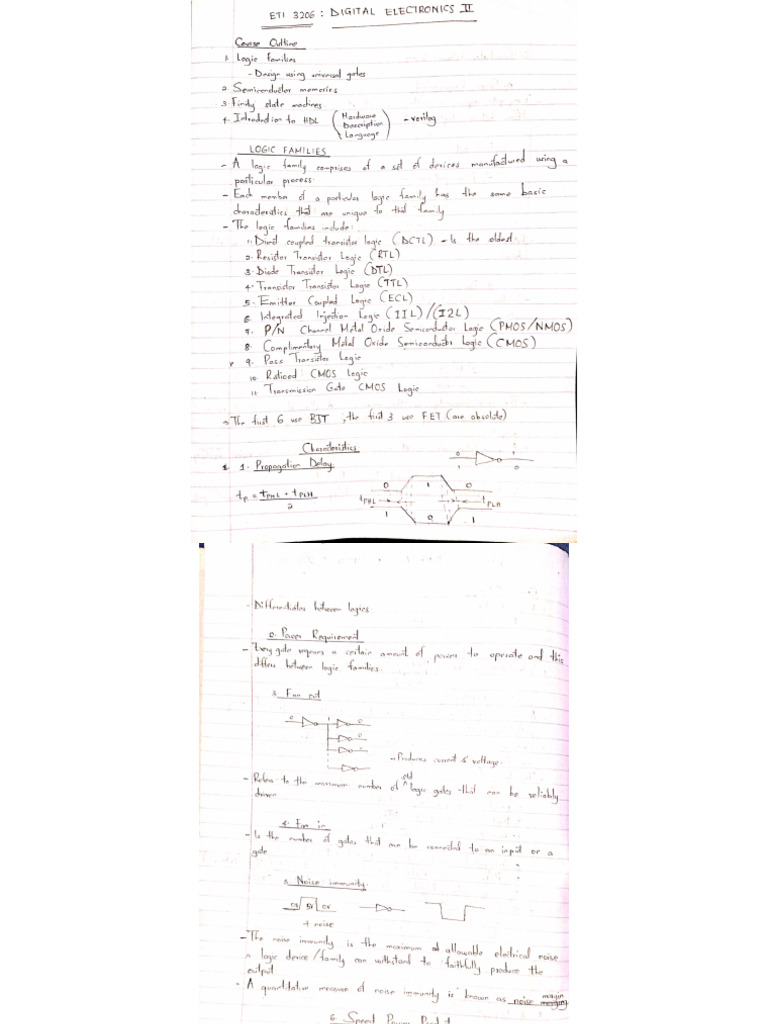 ETI 3206 : DIGITAL ELECTRONICS II
Course Outline
1. Logic families
- Design using universal gates
2. Semiconductor memories
3. Finity state machines
4. Introduction to HDL (Hardware Description Language) - verilog
LOGIC FAMILIES
- A logic family comprises of a set of devices manufactured using a
particular process
- Each member of a particular logic family has the same basic
characteristics that are unique to that family
- The logic families include:
1. Direct coupled transistor logic (DCTL) - Is the oldest
2. Resistor Transistor Logic (RTL)
3. Diode Transistor Logic (DTL)
4. Transistor Transistor Logic (TTL)
5. Emitter Coupled Logic (ECL)
6. Integrated Injection Logic (IIL)/(I2L)
7. P/N Channel Metal Oxide Semiconductor Logic (PMOS/NMOS)
8. Complimentary Metal Oxide Semiconductor Logic (CMOS)
9. Pass Transistor Logic
10. Ratioed CMOS Logic
11. Transmission Gate CMOS Logic
The first 6 use BJT, the first 3 use FET (are obsolete)
Characteristics
1. Propagation Delay
0 1
1 0
tp = tPHL + tPLH
2
0 1 0
tPHL tPLH
1 0 1
- Differentiates between logics
2. Power Requirement
- Every gate requires a certain amount of power to operate and this
differs between logic families.
3. Fan out
0 1 0
0
0
- Produces current & voltage
- Refers to the maximum number of std logic gates that can be reliably
driven
4. Fan in
- Is the number of gates that can be connected to an input or a
gate
5. Noise immunity
0V 5V 0V
+ noise
- The noise immunity is the maximum allowable electrical noise
a logic device/family can withstand to faithfully produce the
output
- A quantitative measure of noise immunity is known as noise margin
6. Speed Power Product